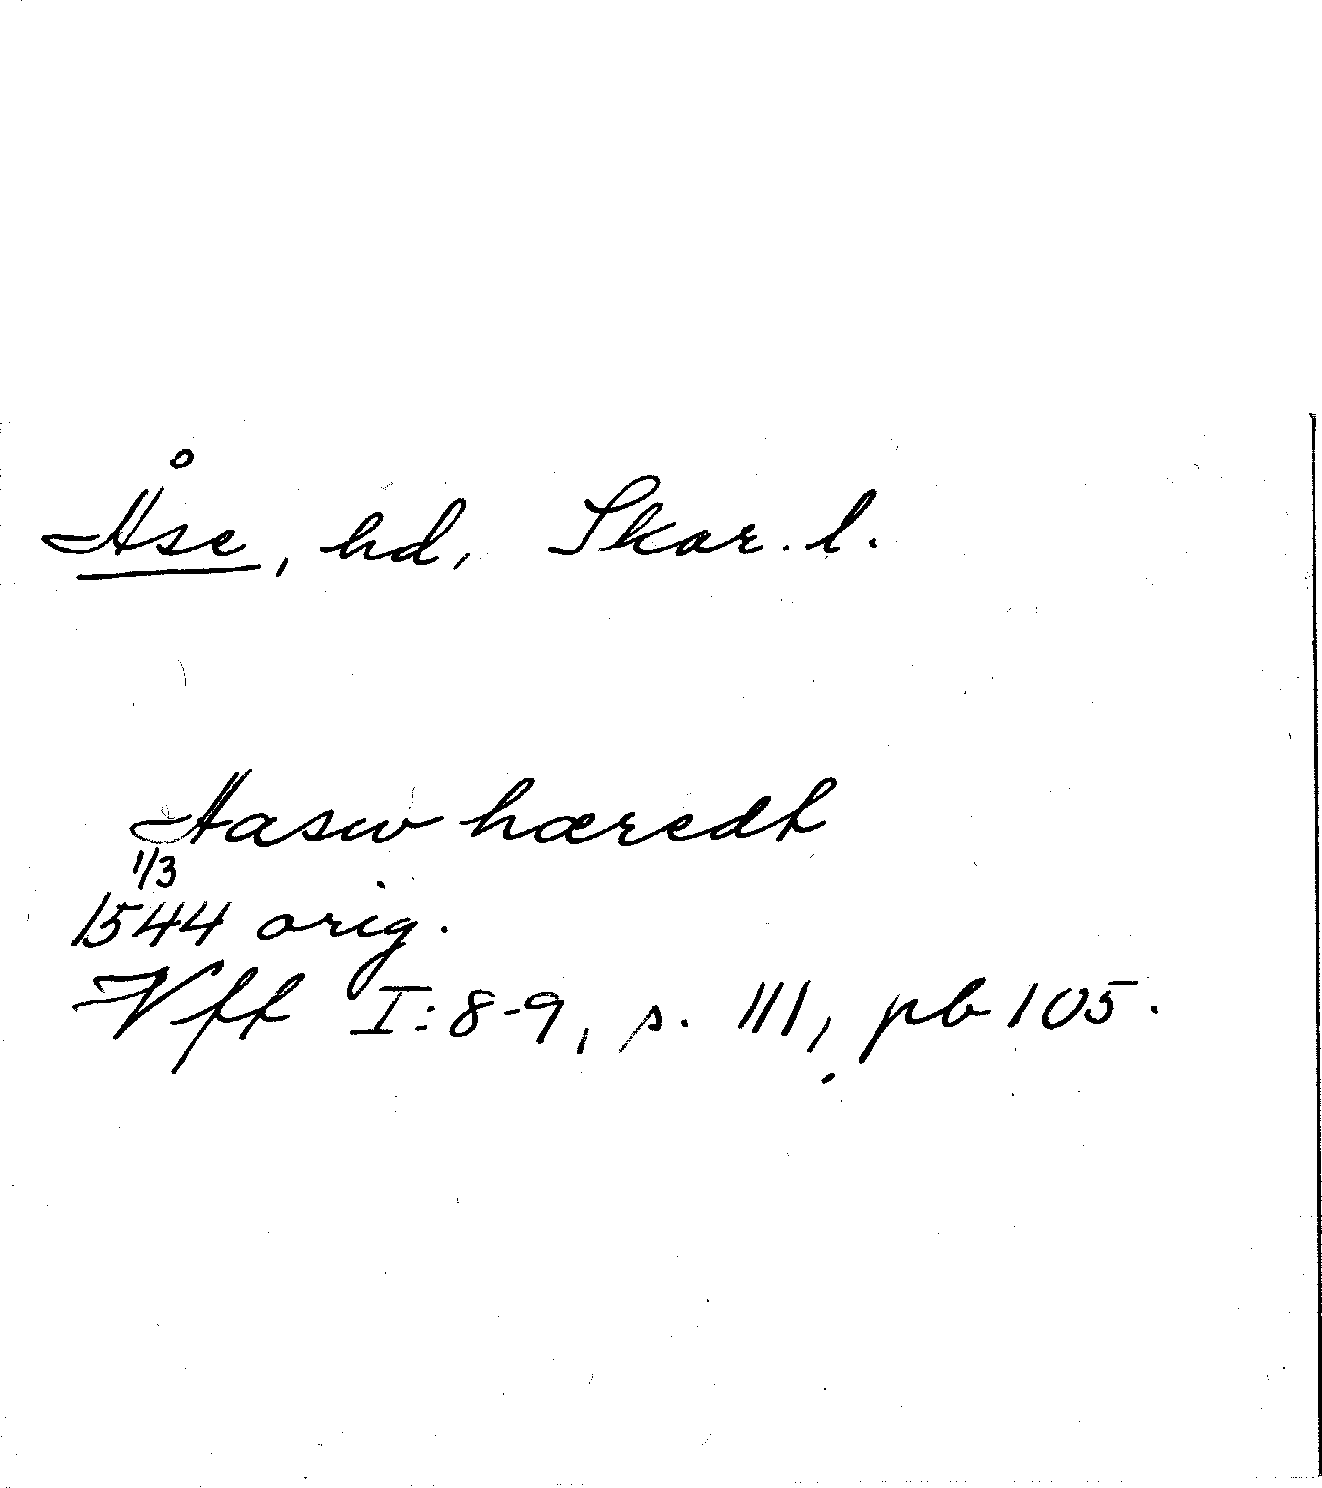 Åse, hd, Skar. l.
Aasw hæredh
1/3
1544 orig.
Vff I:8-9, s. 111, pb 105.